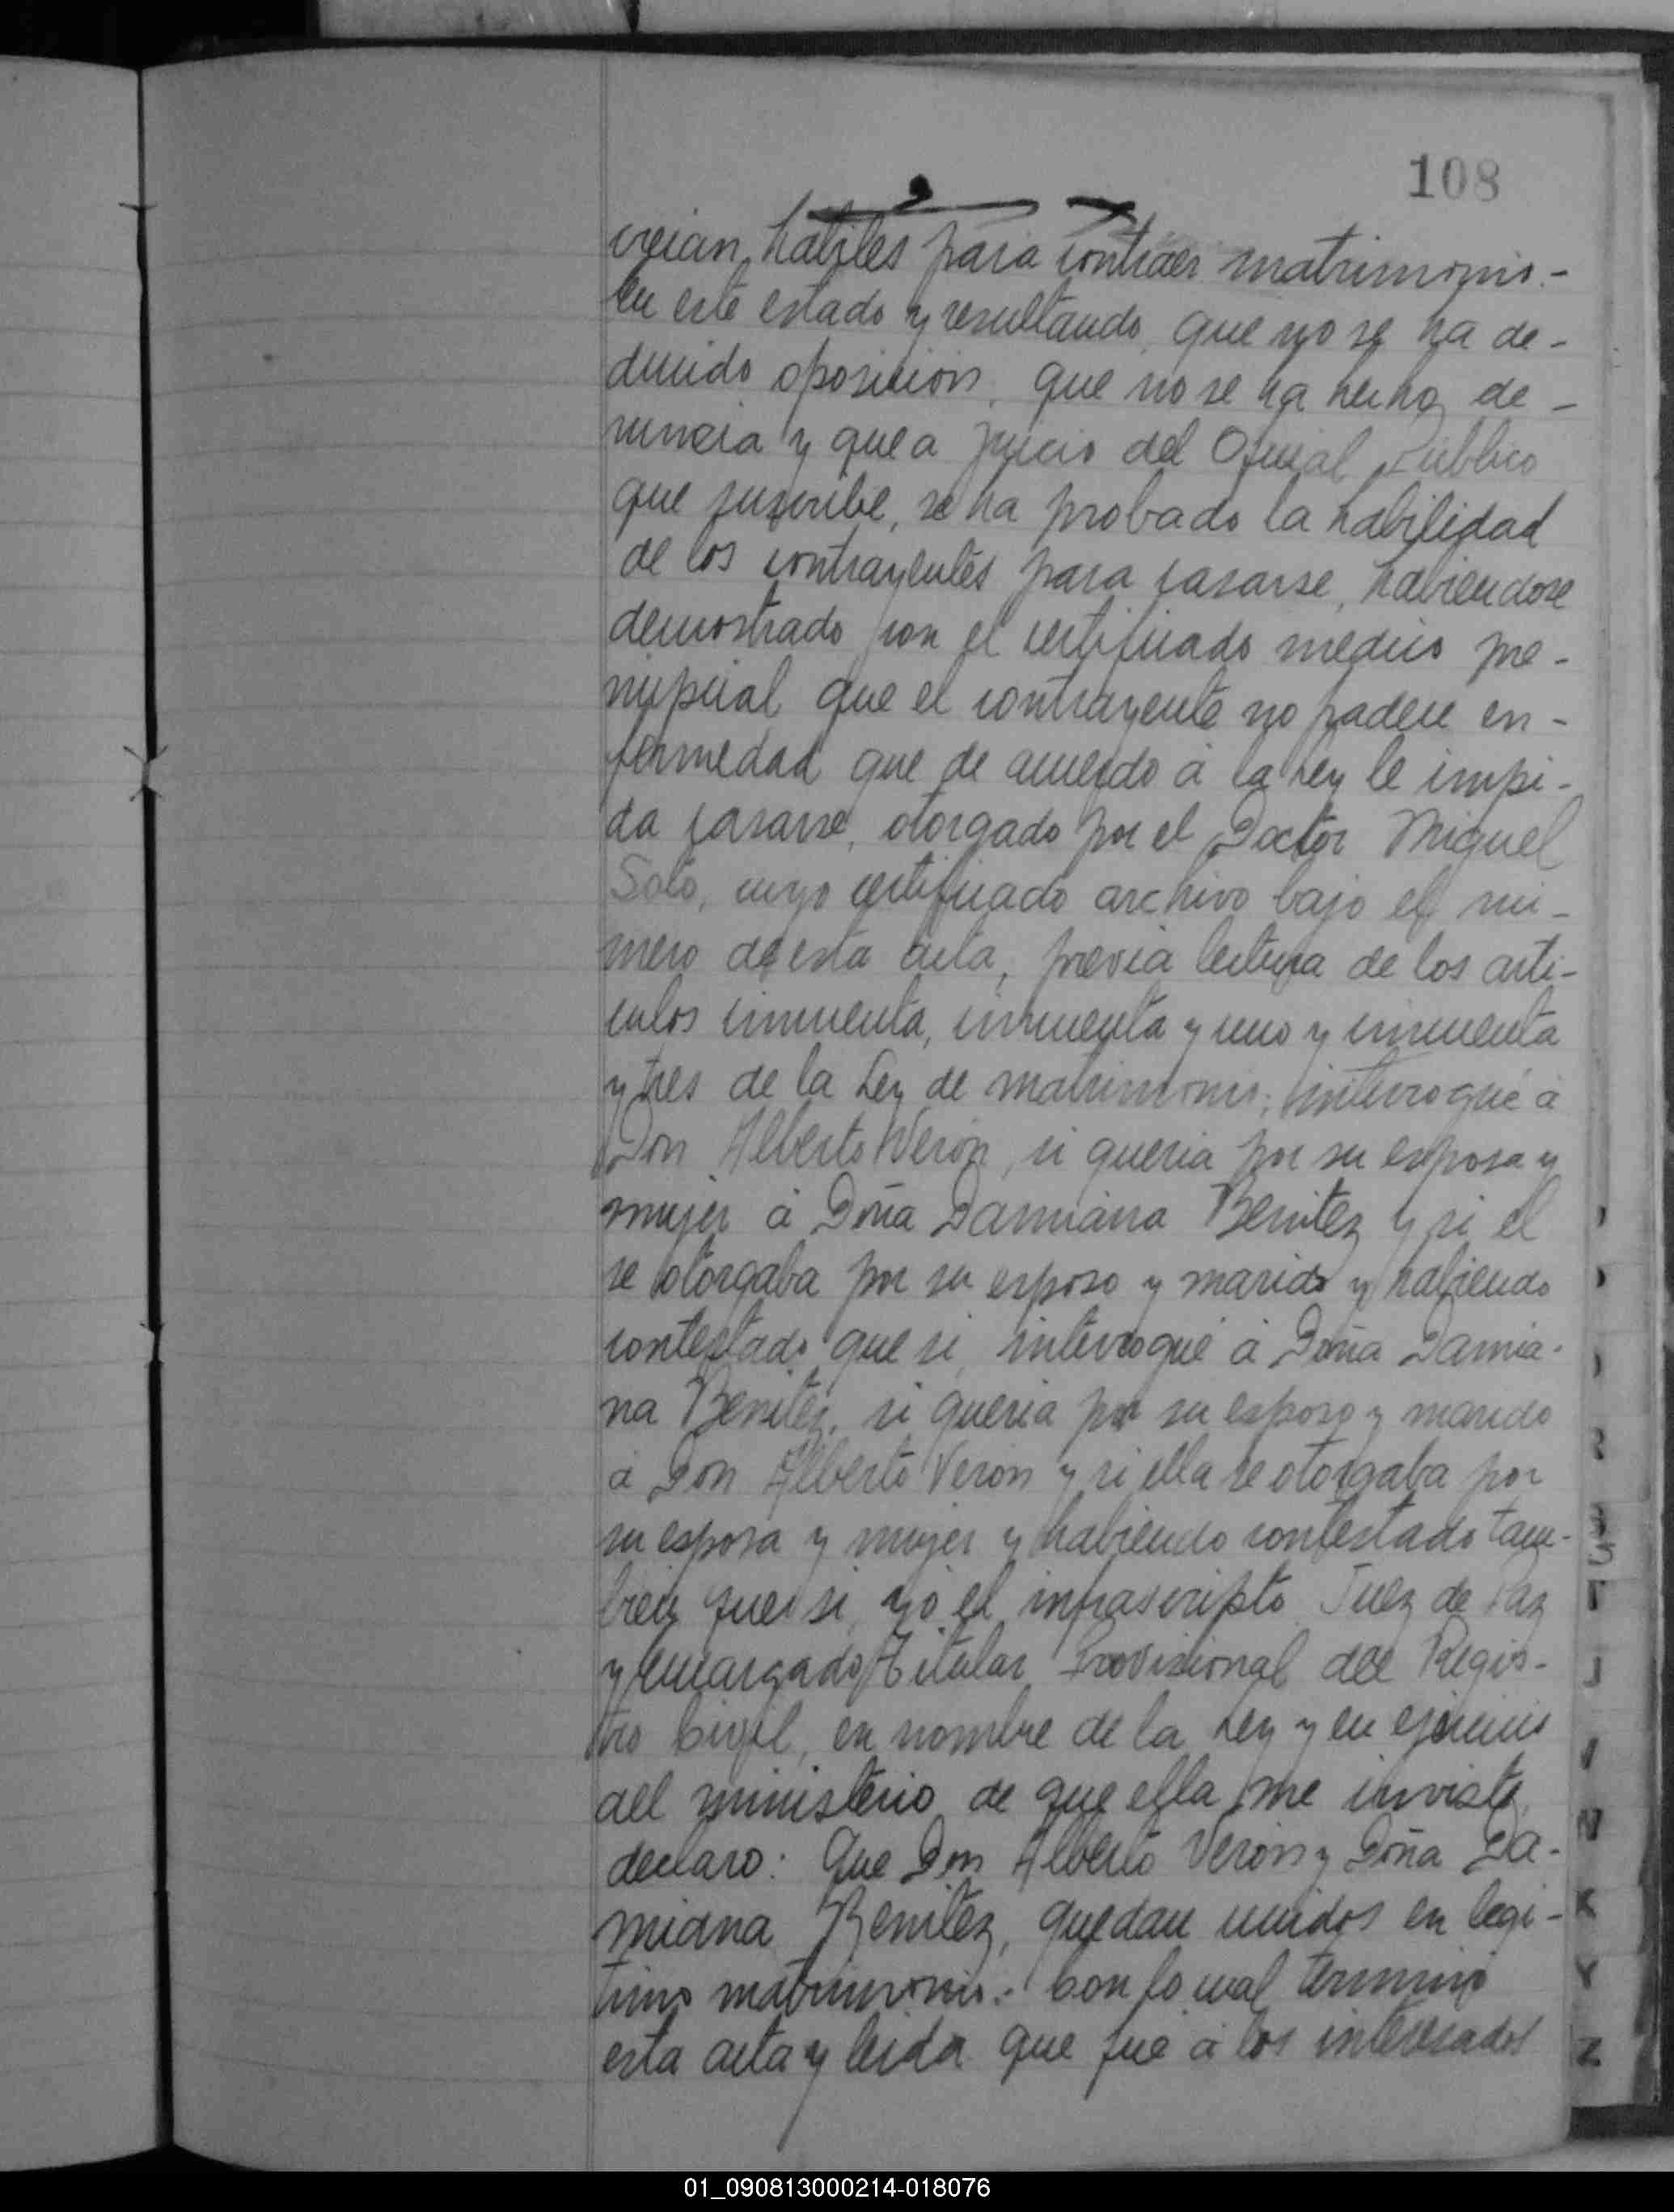 108
creian habiles para contraer matrimonio.-
En este estado y resultando, que no se ha de-
ducido oposicion, que no se ha hecho de-
nuncia y que a juicio del Oficial Público
que suscribe, se ha probado la habilidad
de los contrayentes para casarse, habiendose
demostrado con el certificado medico pre-
nupcial que el contrayente no padece en-
fermedad que de acuerdo á la Ley le impi-
da casarse, otorgado por el Doctor Miguel
Soto, cuyo certificado archivo bajo el nú-
mero de esta acta, previa lectura de los arti-
culos cincuenta, cincuenta y uno y cincuenta
y tres de la Ley de matrimonio; interrogué á
Don Alberto Veron, si queria por su esposa y
mujer á Doña Damiana Benitez y si el
se otorgaba por su esposo y marido y habiendo
contestado que si, interrogué á Doña Damia-
na Benitez, si queria por su esposo y marido
á Don Alberto Veron y si ella se otorgaba por
su esposa y mujer y habiendo contestado tam-
bien que si, yo el infrascripto Juez de Paz
y Encargado Titular Provisional del Regis-
tro Civil, en nombre de la Ley y en ejercicio
del ministerio de que ella me inviste,
declaro: Que Don Alberto Veron y Doña Da-
miana Benitez, quedan unidos en legi-
timo matrimonio.- Con lo cual terminó
esta acta y leida que fué á los interesados
01_090813000214-018076